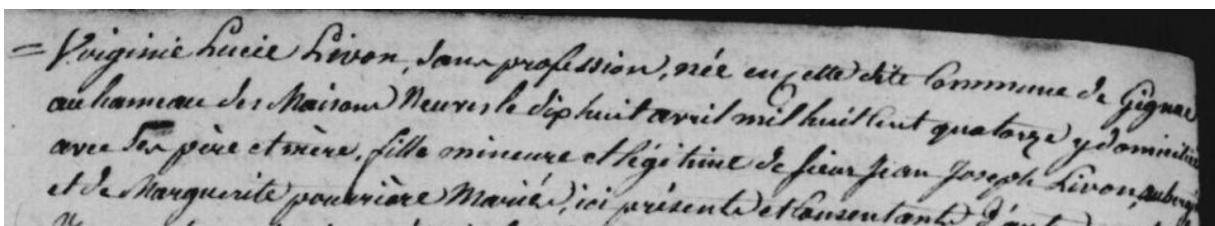 = Virginie Lucie Livon, sans profession, née en cette dite Commune de Gignac
au hameau des Maisons Neuves le dix huit avril mil huit cent quatorze y domiciliée
avec ses père et mère, fille mineure et légitime de sieur Jean Joseph Livon, auberg
et de Marguerite pourrière Mariés, ici présents et Consentants d'autre